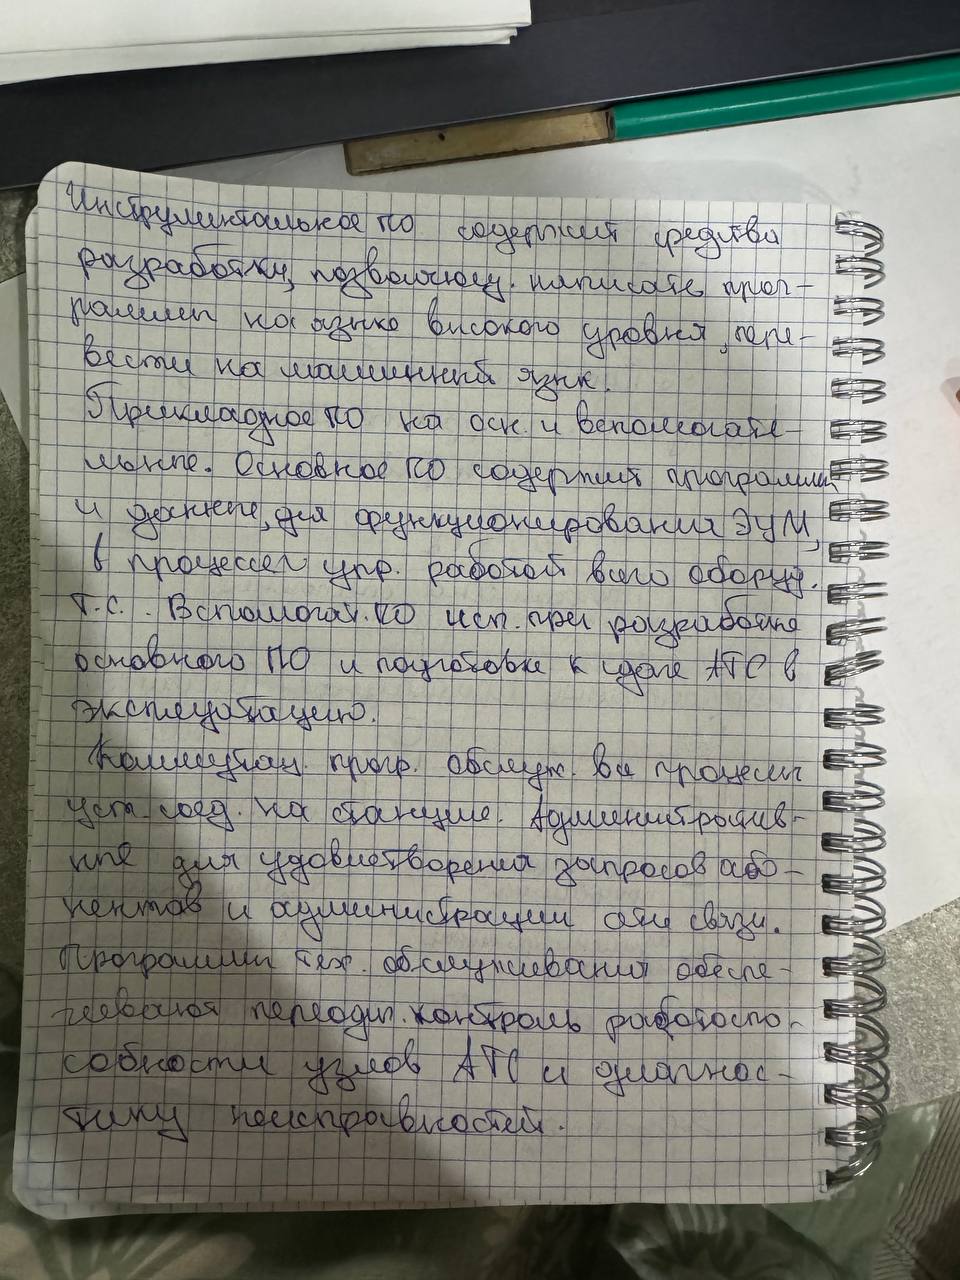 Инструментальное ПО содержит средства
разработки, позволяющ. написать прог-
раммы на языке высокого уровня, пере-
вести на машинный язык.
Прикладное ПО на осн. и вспомогате-
льные. Основное ПО содержит программы
и данные, для функционирования ЭУМ,
в процессе упр. работой всего оборуд.
т.с. Вспомогат. ПО исп. при разработке
основного ПО и подготовке к сдаче АТС в
эксплуатацию.
Коммутац. прогр. обслуж. все процессы
уст. соед. на станции. Административ-
ные для удовлетворения запросов або-
нентов и администрации сети связи.
Программы тех. обслуживания обеспе-
чивают периодич. контроль работоспо-
собности узлов АТС и диагнос-
тику неисправностей.